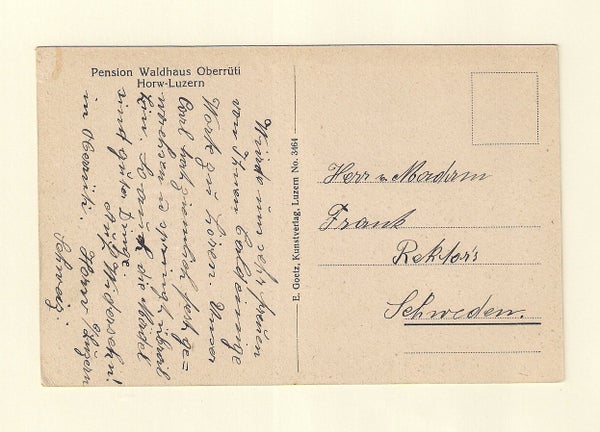 Pension Waldhaus Oberrüti
Horw-Luzern
Würde uns sehr freuen
von Ihnen baldeinige
Worte zu hören. Unser
hat ziemlich fest ge-
u springt überall
hin. So auch die Mädel
sind guter Dinge
Auf Wiedersehn!
in Oberrüti. Horw Luzern
Schweiz.
E. Goetz, Kunstverlag, Luzern No. 3464
Herr u Madam
Frank
Rektor's
Schweden.